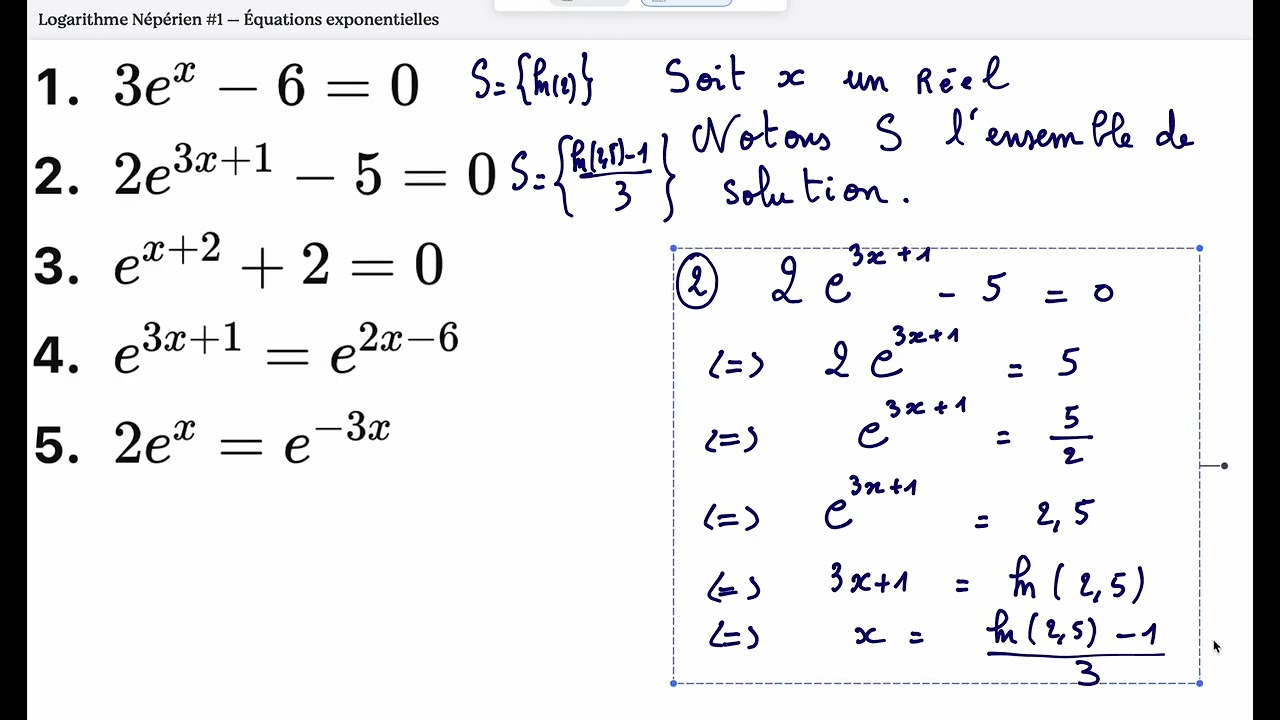 Logarithme Népérien #1 — Équations exponentielles
1. 3e^x − 6 = 0 S = {ln(2)}
2. 2e^{3x+1} − 5 = 0 S = {(ln(2,5) − 1)/3}
3. e^{x+2} + 2 = 0
4. e^{3x+1} = e^{2x−6}
5. 2e^x = e^{−3x}
Soit x un Réel
Notons S l'ensemble de
solution.
② 2e^{3x+1} - 5 = 0
(=) 2e^{3x+1} = 5
(=) e^{3x+1} = 5/2
(=) e^{3x+1} = 2,5
(=) 3x+1 = ln(2,5)
(=) x = (ln(2,5) - 1)/3